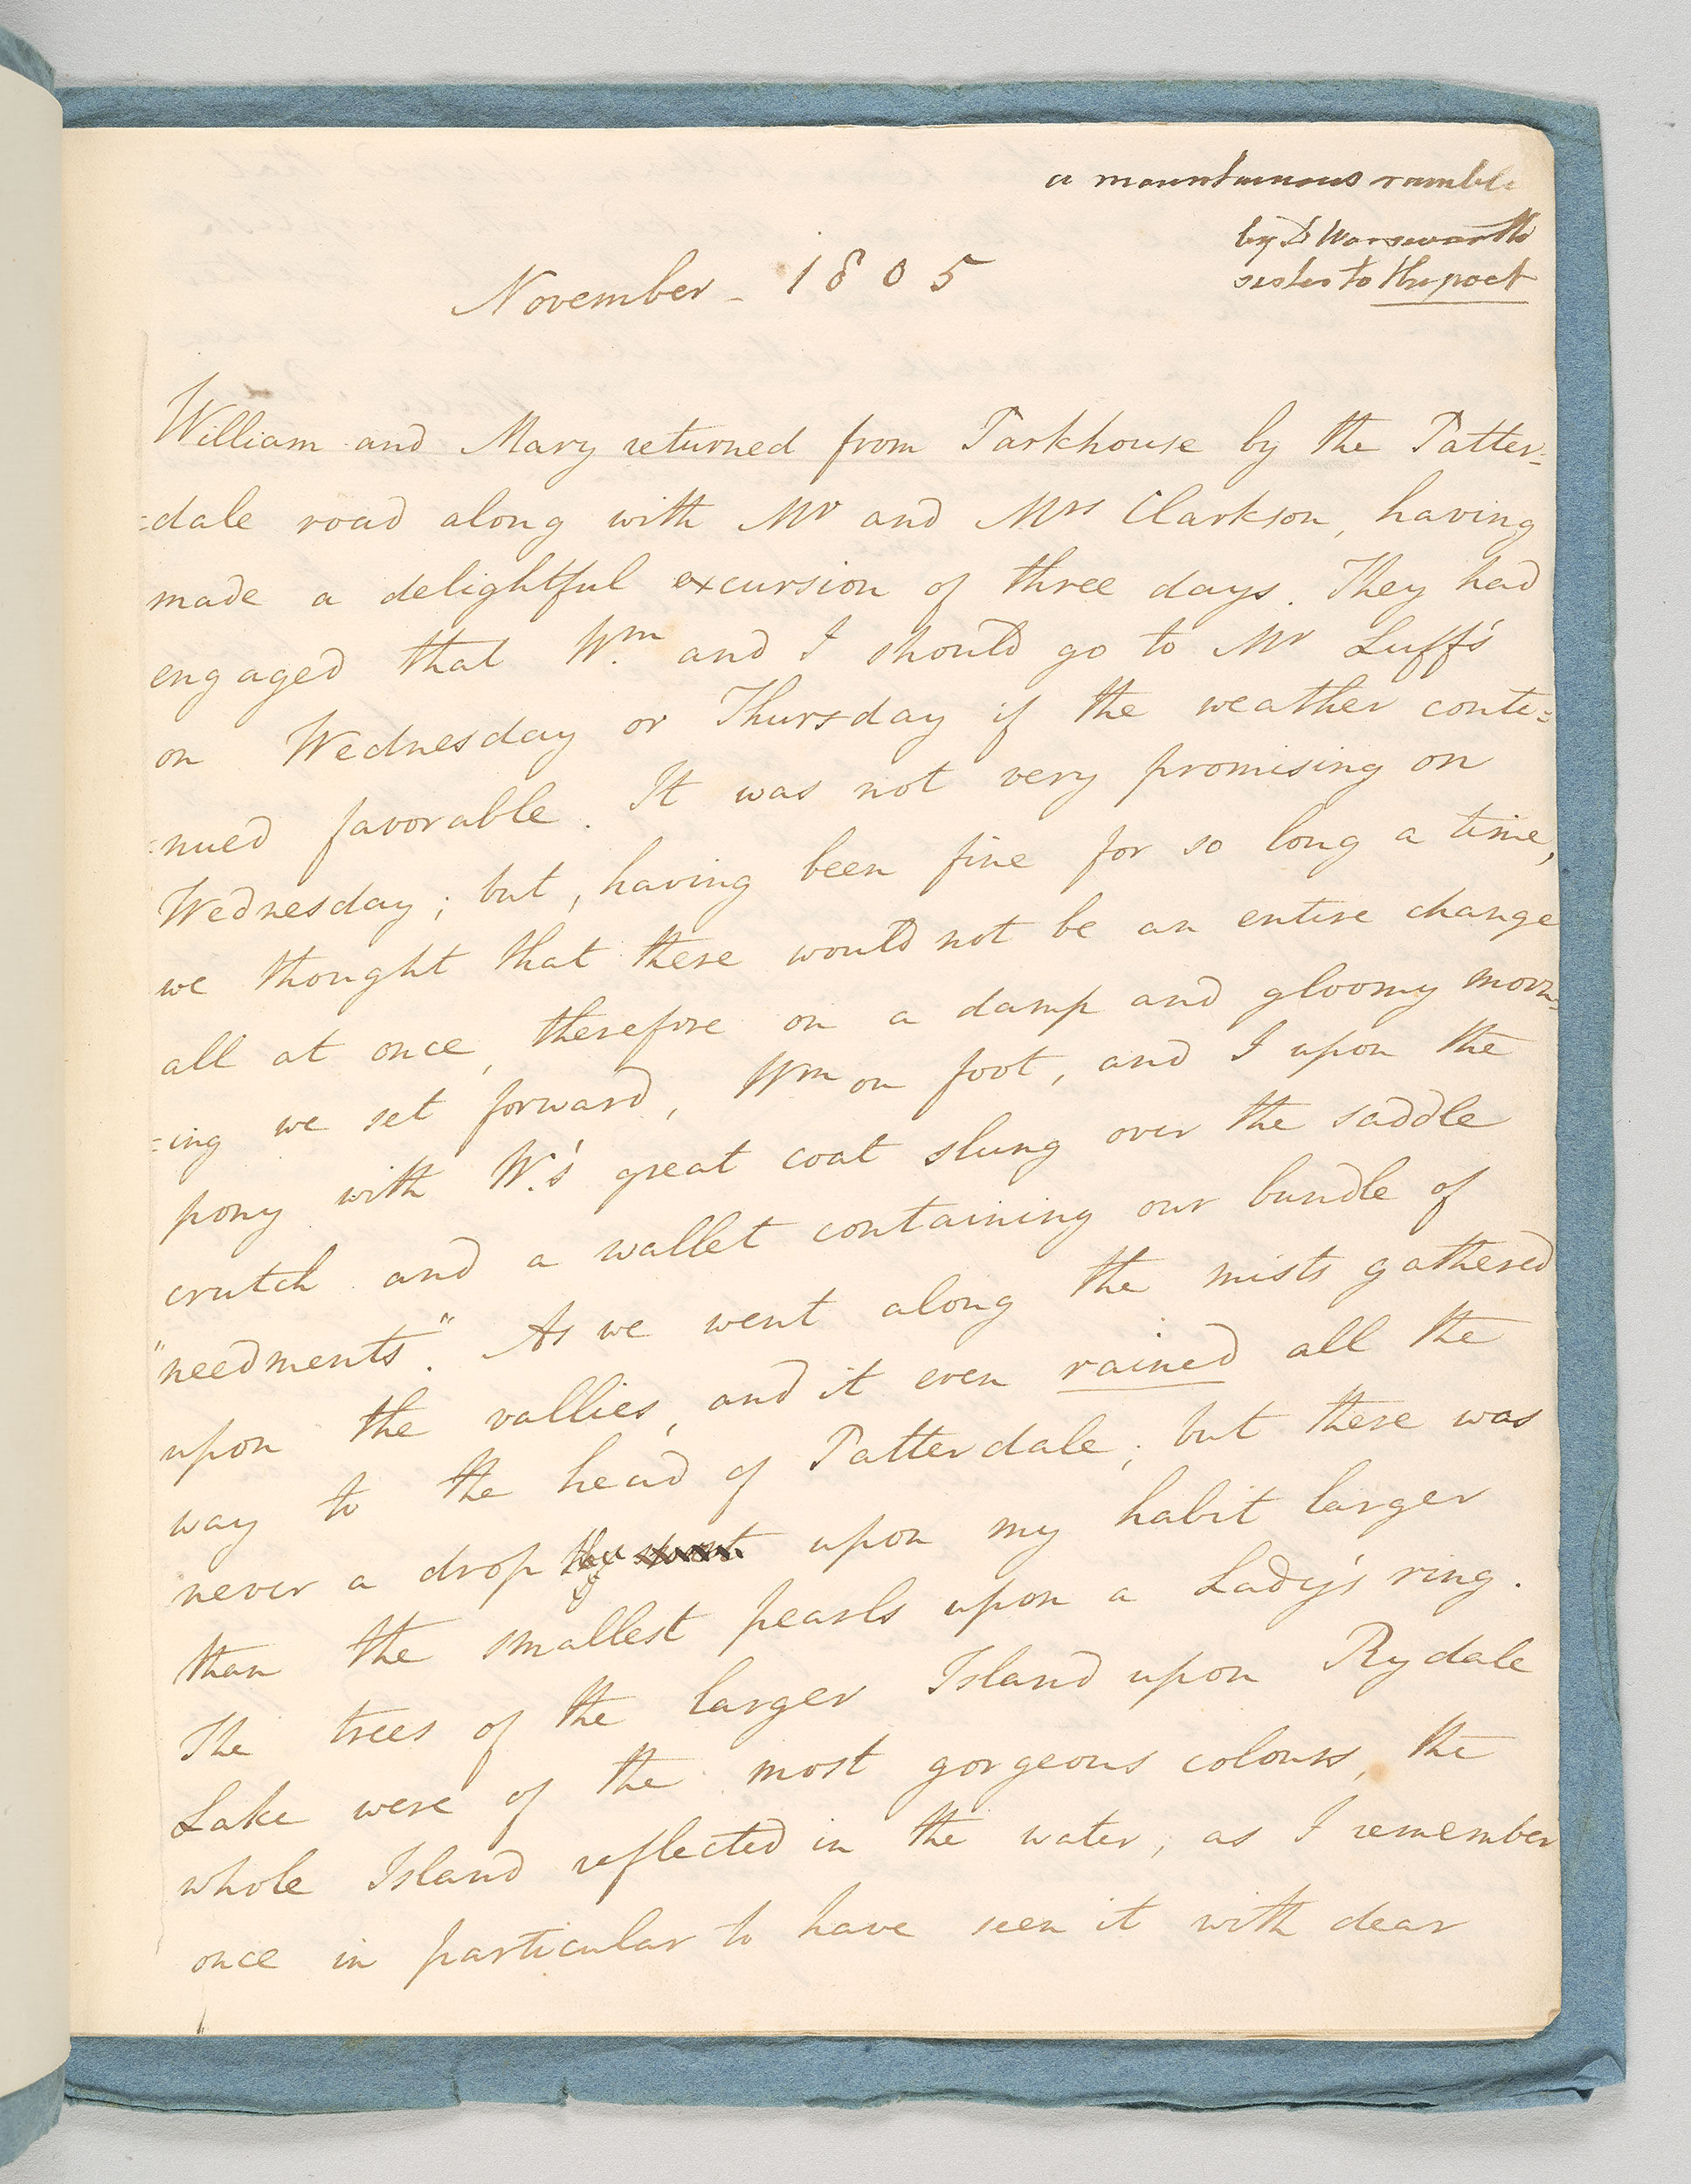 a mountainous ramble
by D Worsworth
sister to the poet
November - 1805
William and Mary returned from Parkhouse by the Patter=
=dale road along with Mr and Mrs Clarkson, having
made a delightful excursion of three days. They had
engaged that Wm and I should go to Mr Luff's
on Wednesday or Thursday if the weather conti=
=nued favorable. It was not very promising on
Wednesday; but, having been fine for so long a time,
we thought that there would not be an entire change
all at once, therefore on a damp and gloomy morn=
=ing we set forward, Wm on foot, and I upon the
pony with W.'s great coat slung over the saddle
crutch and a wallet containing our bundle of
"needments". As we went along the mists gathered
upon the vallies, and it even rained all the
way to the head of Patterdale; but there was
never a drop upon my habit larger
than the smallest pearls upon a Lady's ring.
The trees of the larger Island upon Rydale
Lake were of the most gorgeous colours, the
whole Island reflected in the water, as I remember
once in particular to have seen it with dear